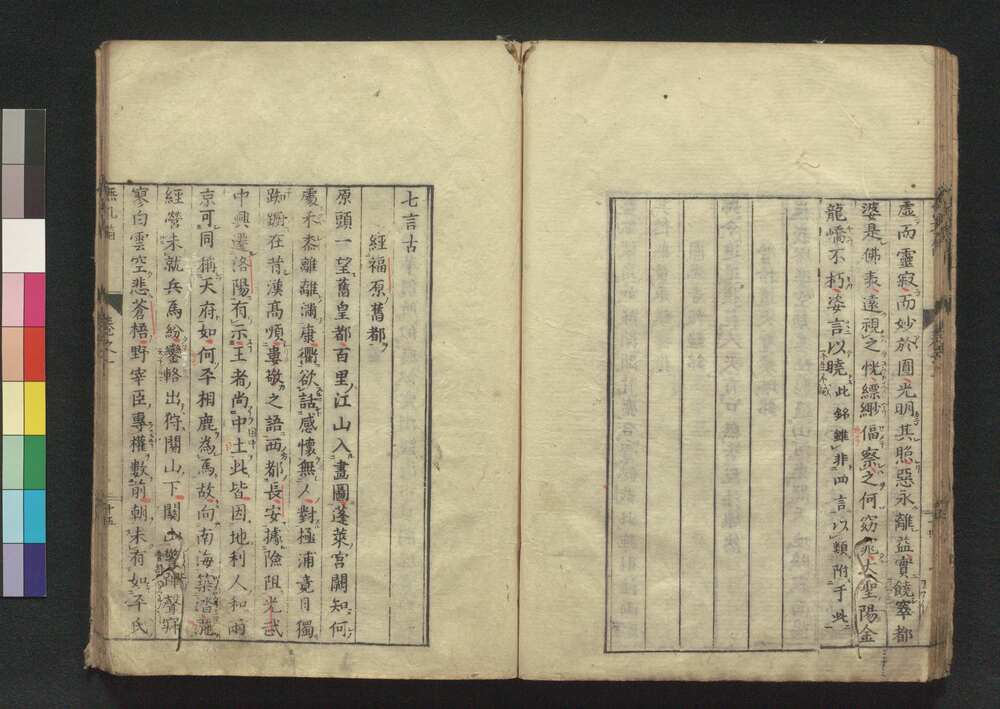 虛而靈寂而妙於圓光明其照惡永離益實饒窣都
婆是佛表遠視之恍縹緲偪察之何窈大聖陽金
龍嶠不朽姿言以曉此銘雖非四言以類附于此
七言古
經福原舊都
原頭一望舊皇都百里江山入畫圖蓬萊宮闕知何
處禾黍離離滿康衢欲話感懷無人對極浦竟日獨
踟躕在昔漢高順婁敬之語西都長安據險阻光武
中興遷洛陽有示王者尚中土此皆因地利人和兩
京可同稱天府如何平相鹿為馬故向南海築
經營未就兵馬紛鑾輅出狩關山下關山聲
寥白雲空悲蒼梧野宰臣專權數前朝未有如平氏
無孔笛
十五